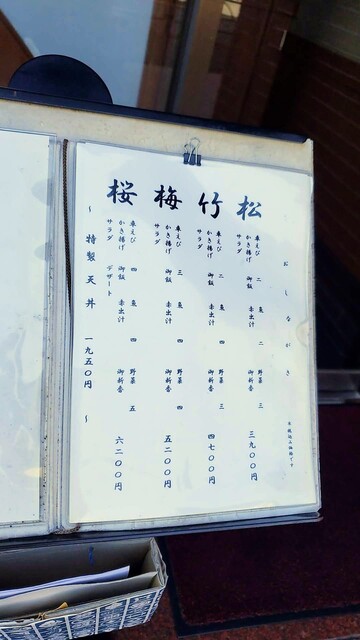 おしながき
松
車えび 二 魚 二 野菜 三
かき揚げ 御飯 赤出汁 御新香
サラダ
三九〇〇円
竹
車えび 二 魚 四 野菜 三
かき揚げ 御飯 赤出汁 御新香
サラダ
四七〇〇円
梅
車えび 三 魚 四 野菜 四
かき揚げ 御飯 赤出汁 御新香
サラダ
五二〇〇円
桜
車えび 四 魚 四 野菜 五
かき揚げ 御飯 赤出汁 御新香
サラダ デザート
六二〇〇円
~ 特製 天丼 一九五〇円 ~